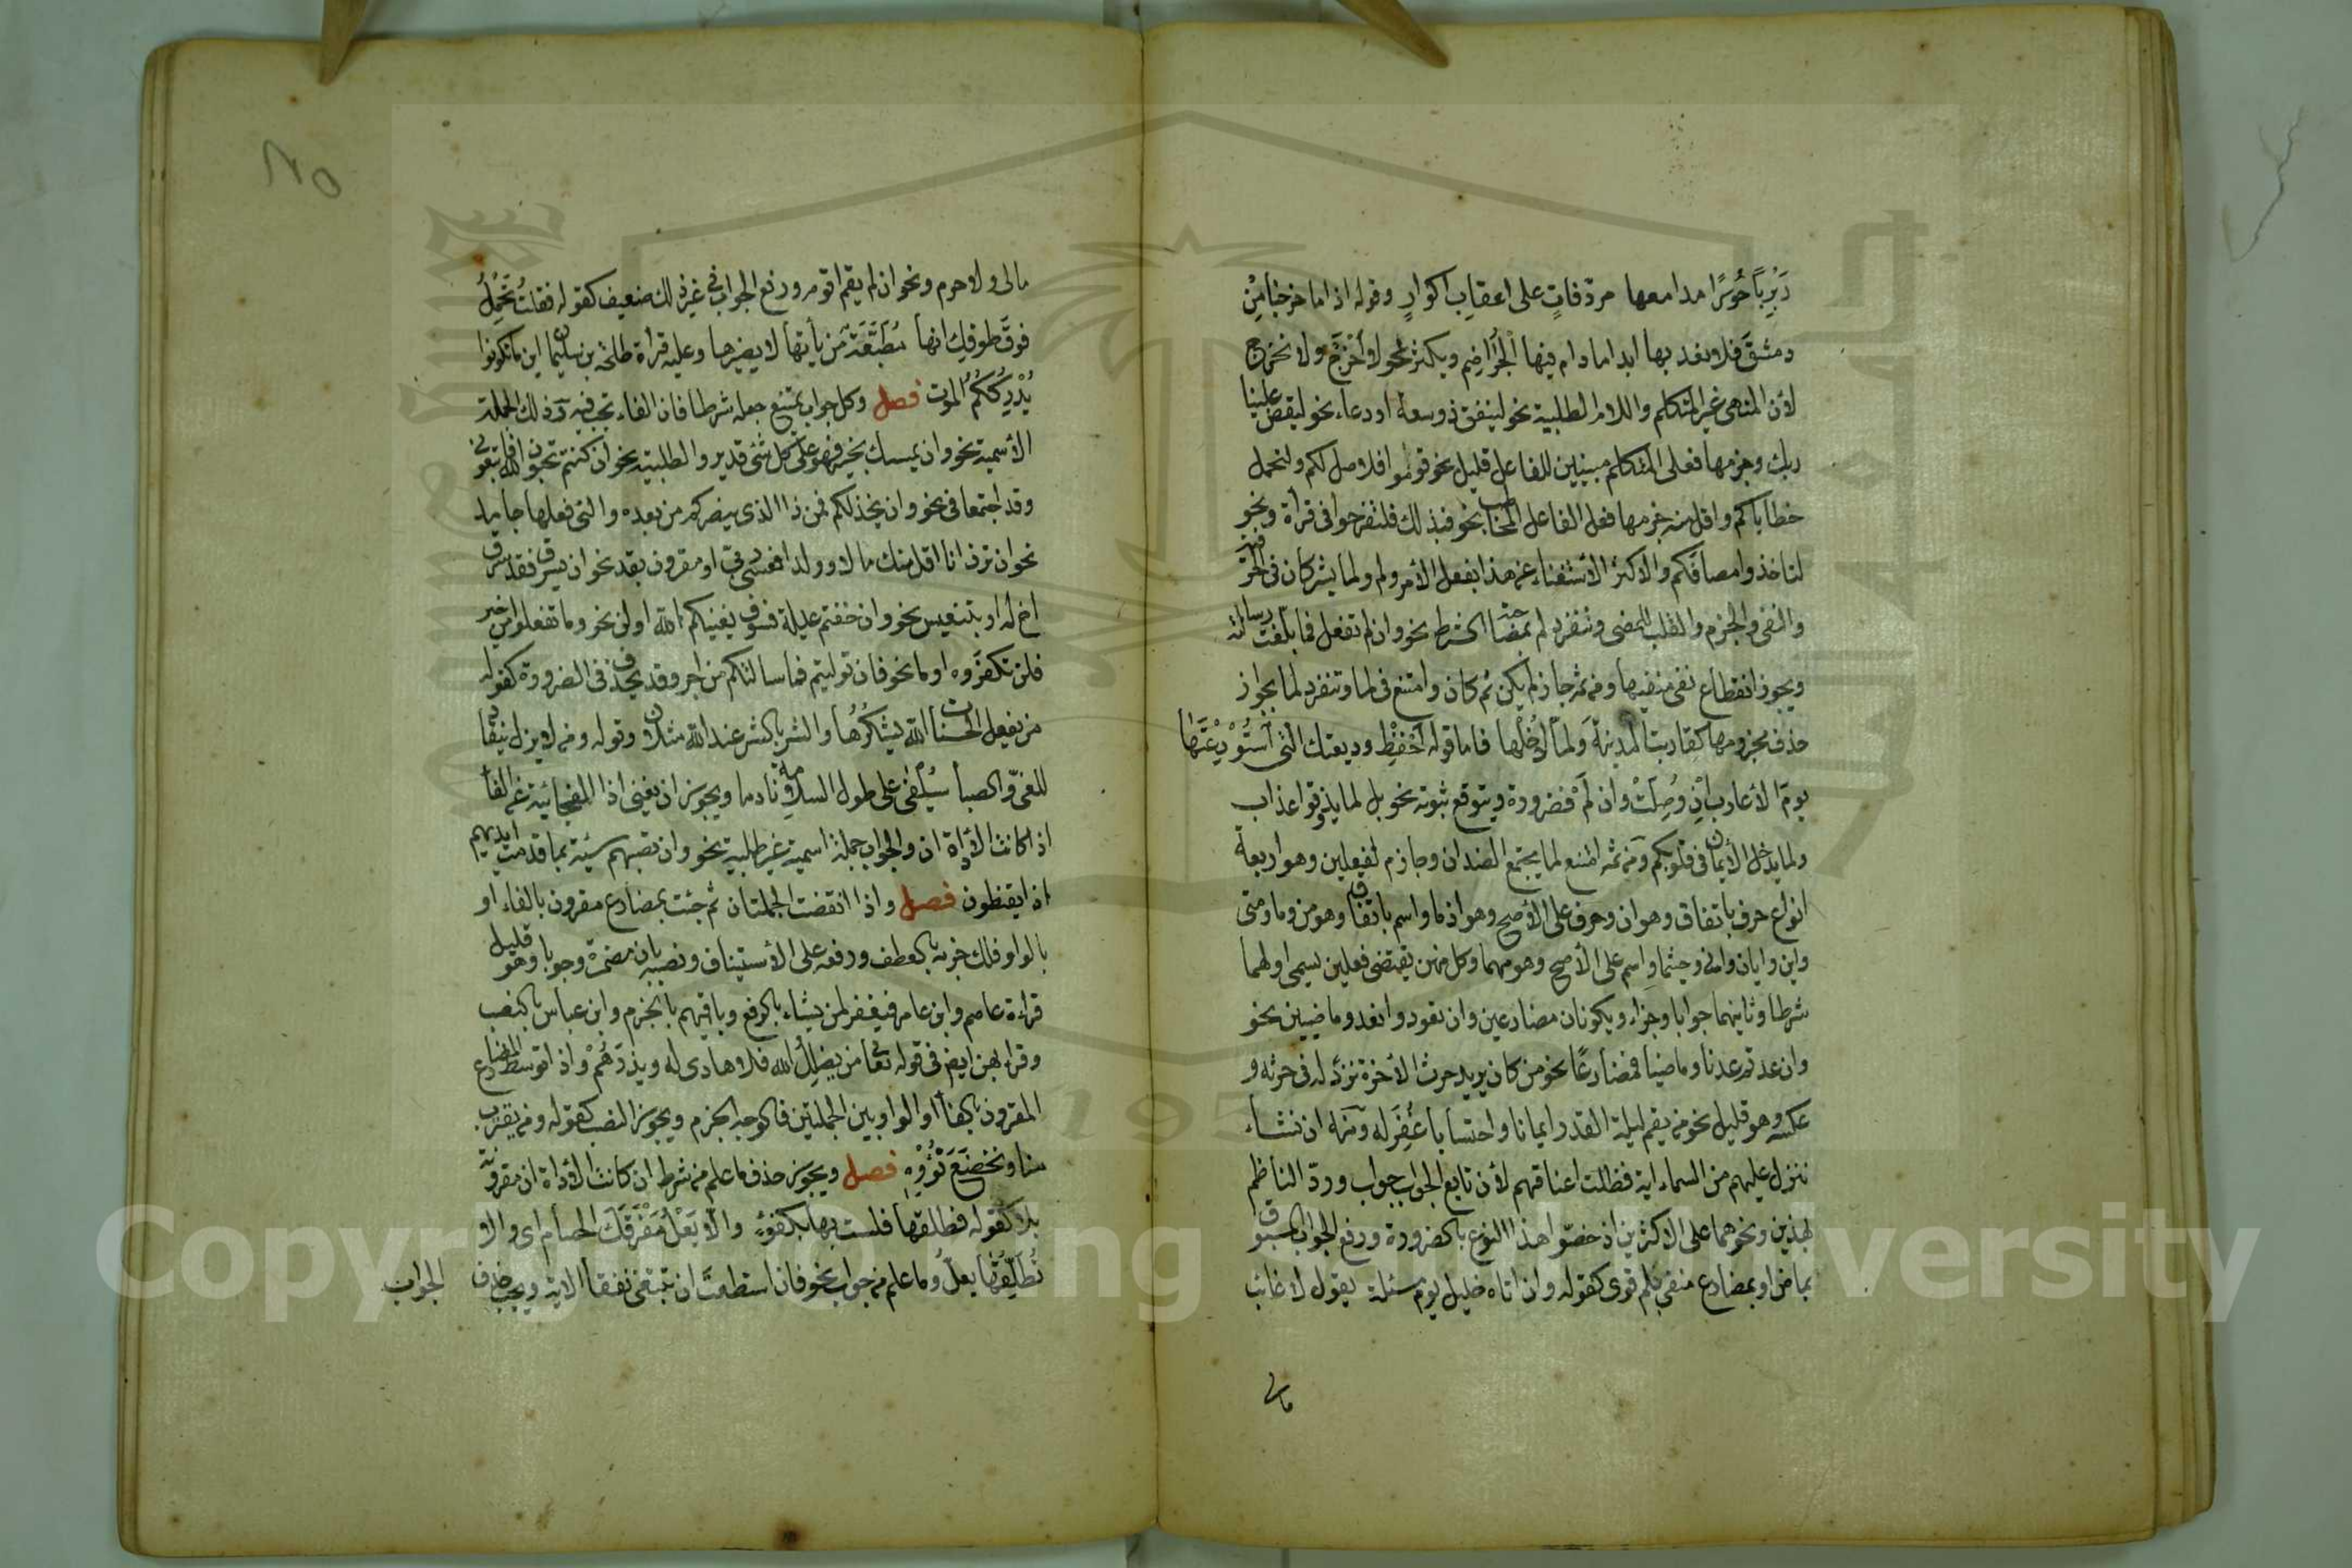 رَبْرَبًا حُوْرًا مدامعها مردّفاتٍ على اعقاب اكوارٍ وقوله اذا ما خرجنا مِنْ
دمشقَ فلا نعد بها ابدا ما دام فيها الْجُرَاضِم ويكثر نحو لا أُخْرَجْ ولا نخرج
لأن المنهى غير المتكلم واللام الطلبية نحو لينفق ذو سعة او دعاء نحو ليقض علينا
ربك وجزمها فعلى المتكلم مبنيين للفاعل قليل نحو قوموا فلاصل لكم ولنحمل
خطاياكم واقل منه جزمها فعل الفاعل المخاطب نحو فبذلك فلتفرحوا فى قرأة ونحو
لتأخذوا مصافّكم والاكثر الأستغناء عن هذا بفعل الأمر ولم ولما يشتركان فى الحرفية
والنفى والجزم والقلب للمضى وتنفرد لم بمصاحبة الشرط نحو وان لم تفعل فما بلغت رسالته
ويجوز انقطاع نفى منفيها ومن ثم جاز لم يكن ثم كان وامتنع فى لما وتنفرد لما بجواز
حذف مجزومها كقاربت المدينة وَلمّا لادخلها فاما قوله اَحْفِظْ وديعتك التى اُسْتُوْدِعْتَهَا
يومَ الأعارب اِنْ وُصِلَتْ وان لَمْ فضرورة ويتوقع ثبوته نحو بل لما يذوقوا عذاب
ولما يدخل الأيمان فى قلوبكم ومن ثمه امتنع لما يجتمع الضدان وجازم لفعلين وهو اربعة
انواع حرف باتفاق وهو ان وحرف على الأصح وهو اذما واسم باتفاق وهو من وما ومتى
واين وايان وانى وحيثما واسم على الأصح وهو مهما وكل منهن يقتضى فعلين يسمى اولهما
شرطا وثانيهما جوابا وجزاء ويكونان مضارعين وان تعودوا نعد وماضيين نحو
وان عدتم عدنا وماضيا فمضارعًا نحو من كان يريد حرث الأخرة نزد له فى حرثه و
عكسه وهو قليل نحو من يقم ليلة القدر ايمانا واحتسابا غُفِرَ له ومنه ان نشاء
ننزل عليهم من السماء اية فظلت اعناقهم لأن تابع الجواب جواب وردّ الناظم
بهذين ونحوهما على الاكثرين اذ خصّوا هذا النوع بالضرورة ورفع الجواب المسبوق
بماض او بمضارع منفى بلم قوى كقوله وان اتاه خليل يوم مسئلة يقول لا غائب
مالى
مالى ولا حرم ونحو ان لم يقم اقوم ورفع الجواب فى غير ذلك ضعيف كقوله فقلتُ تَحَمَّلْ
فوقَ طوقك انها مُطَبَّعَةٌ من يأتها لا يضيرها وعليه قرأة طلحة بن سليمان اينما تكونوا
يُدْرِكُكُمُ الموت فصل وكل جواب يمتنع جعله شرطا فان الفاء تجب فيه وذلك الجملة
الأسمية نحو وان يمسسك بخير فهو على كل شئ قدير والطلبية نحو ان كنتم تحبون الله فاتبعونى
وقد اجتمعا فى نحو وان يخذلكم فمن ذا الذى ينصركم من بعده والتى فعلها جامد
نحو ان ترن انا اقل منك مالا وولدا فعسى ربى او مقرون بقد نحو ان يسرق فقد سرق
اخ له او بتنفيس نحو وان خفتم عيلة فسوف يغنيكم الله او لن نحو وما تفعلوا من خير
فلن تكفروه او ما نحو فان توليتم فما سألتكم من اجر وقد يحذف فى الضرورة كقوله
من يفعل الحسنات الله يشكُرُها والشر بالشر عند الله مثلان وقوله ومن لا يزل ينقاد
للغىّ والصبا سيُلْفَى على طول السلامة نادما ويجوز ان يغنى اذا الفجائية عن الفاء
اذا كانت الأداة ان والجواب جملة اسمية غير طلبية نحو وان تصبهم سيئة بما قدمت ايديهم
اذا يقنطون فصل واذا انقضت الجملتان ثم جئت بمضارع مقرون بالفاء او
بالواو فلك جزمه بالعطف ورفعه على الأستيناف ونصبه بان مضمرة وجوبا وهو قليل
قراءة عاصم وابن عامر فيغفر لمن يشاء بالرفع وباقيهم بالجزم وابن عباس بالنصب
وقراء بهن ايضا فى قوله تعالى من يضللِ الله فلا هادى له ويذرهُمْ واذا توسط المضارع
المقرون بالفاء او الواو بين الجملتين فالوجه الجزم ويجوز النصب كقوله ومن يقترب
منا ويخضعَ نُؤْوِهِ فصل ويجوز حذف ما علم من شرط ان كانت الأداة ان مقرونة
بلا كقوله فطلقها فلست بها بكفوءٍ والّا يَعْلُ مَفْرَقَكَ الحسام اى والا
تُطَلِّقْهَا يعلُ وما علم من جواب نحو فان استطعتَ ان تبتغى نفقا الاية ويجب حذف
الجواب